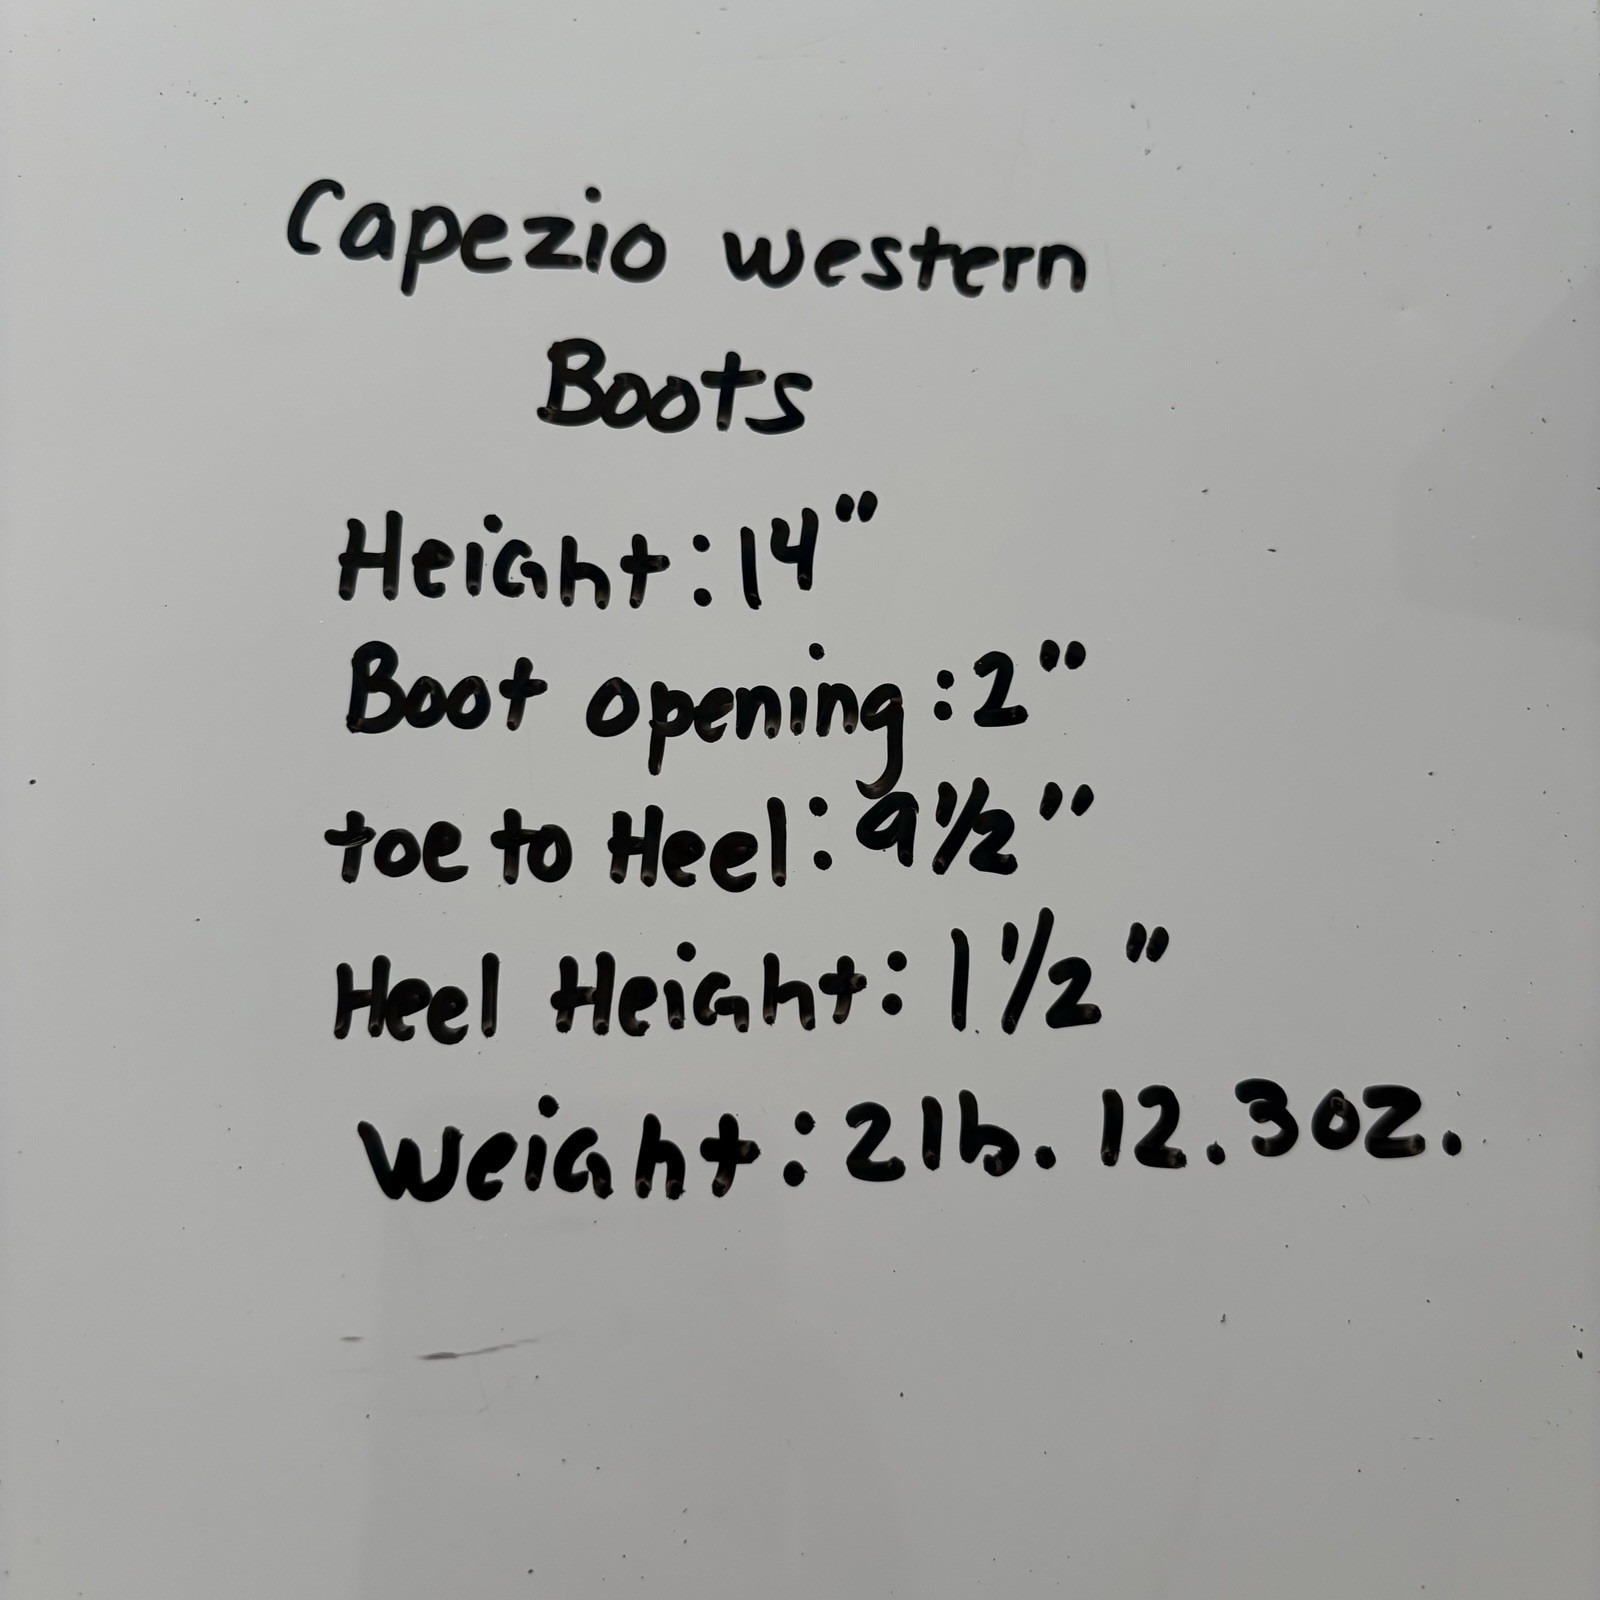 Capezio western
Boots
Height: 14"
Boot opening: 2"
toe to Heel: 9 1/2"
Heel Height: 1 1/2"
Weight: 2lb. 12.3oz.